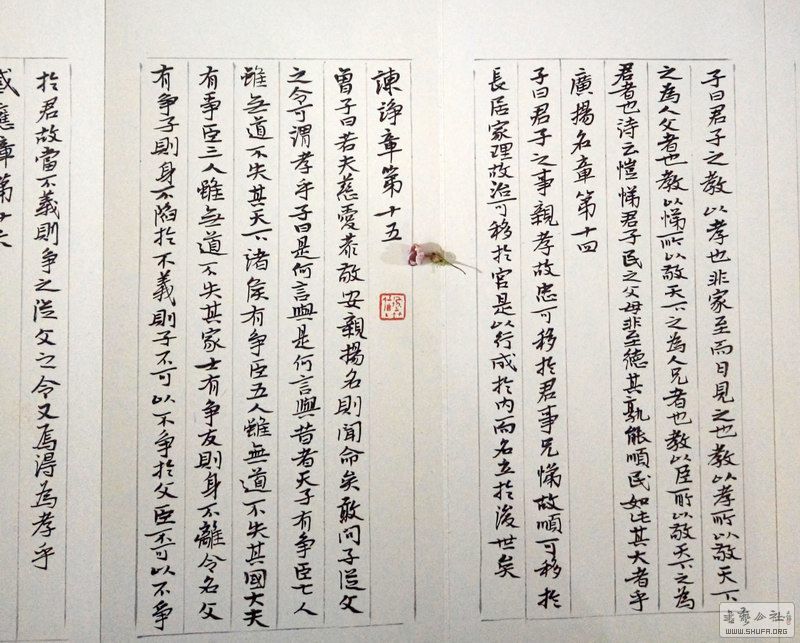 子曰君子之教以孝也非家至而日見之也教以孝所以敬天下
之為人父者也教以悌所以敬天下之為人兄者也教以臣所以敬天下之為人
君者也詩云愷悌君子民之父母非至德其孰能順民如此其大者乎
廣揚名章第十四
子曰君子之事親孝故忠可移於君事兄悌故順可移於
長居家理故治可移於官是以行成於内而名立於後世矣
諫諍章第十五
曾子曰若夫慈愛恭敬安親揚名則聞命矣敢問子從父
之令可謂孝乎子曰是何言與是何言與昔者天子有爭臣七人
雖無道不失其天下諸侯有爭臣五人雖無道不失其國大夫
有爭臣三人雖無道不失其家士有爭友則身不離令名父
有爭子則身不陷於不義則子不可以不爭於父臣不可以不爭
於君故當不義則爭之從父之令又焉得為孝乎
感應章第十六
書藝公社
WWW.SHUFA.ORG